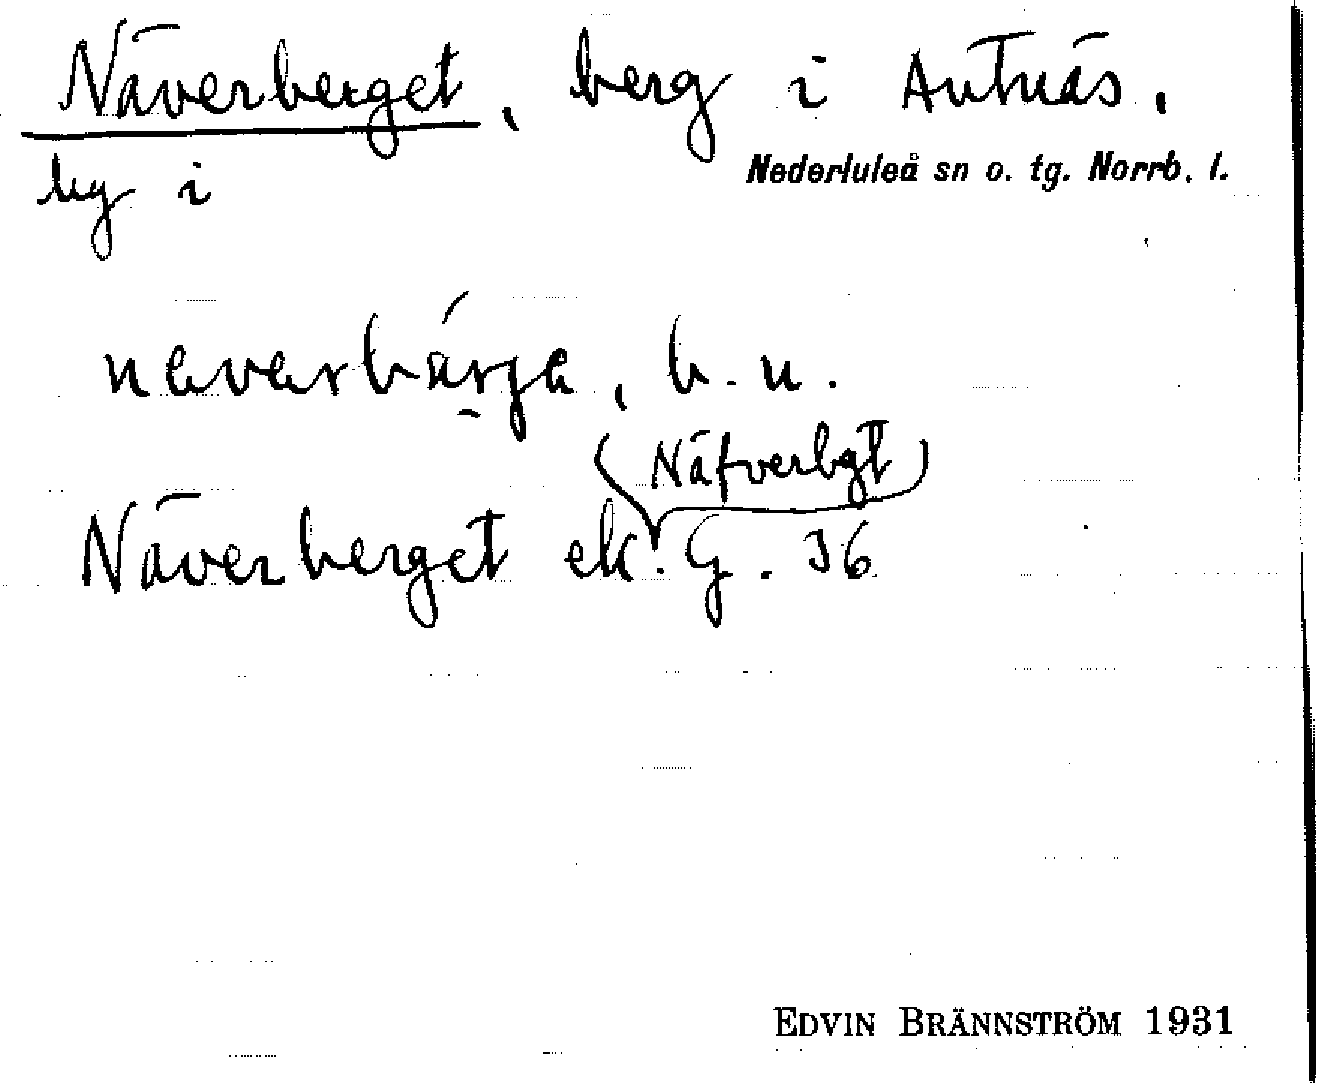 Näverberget, berg i Antnäs,
by i Nederluleå sn o. tg. Norrb. l.
neverbärje, b. n.
(Näfverbgt)
Näverberget ek. G. 36
EDVIN BRÄNNSTRÖM 1931